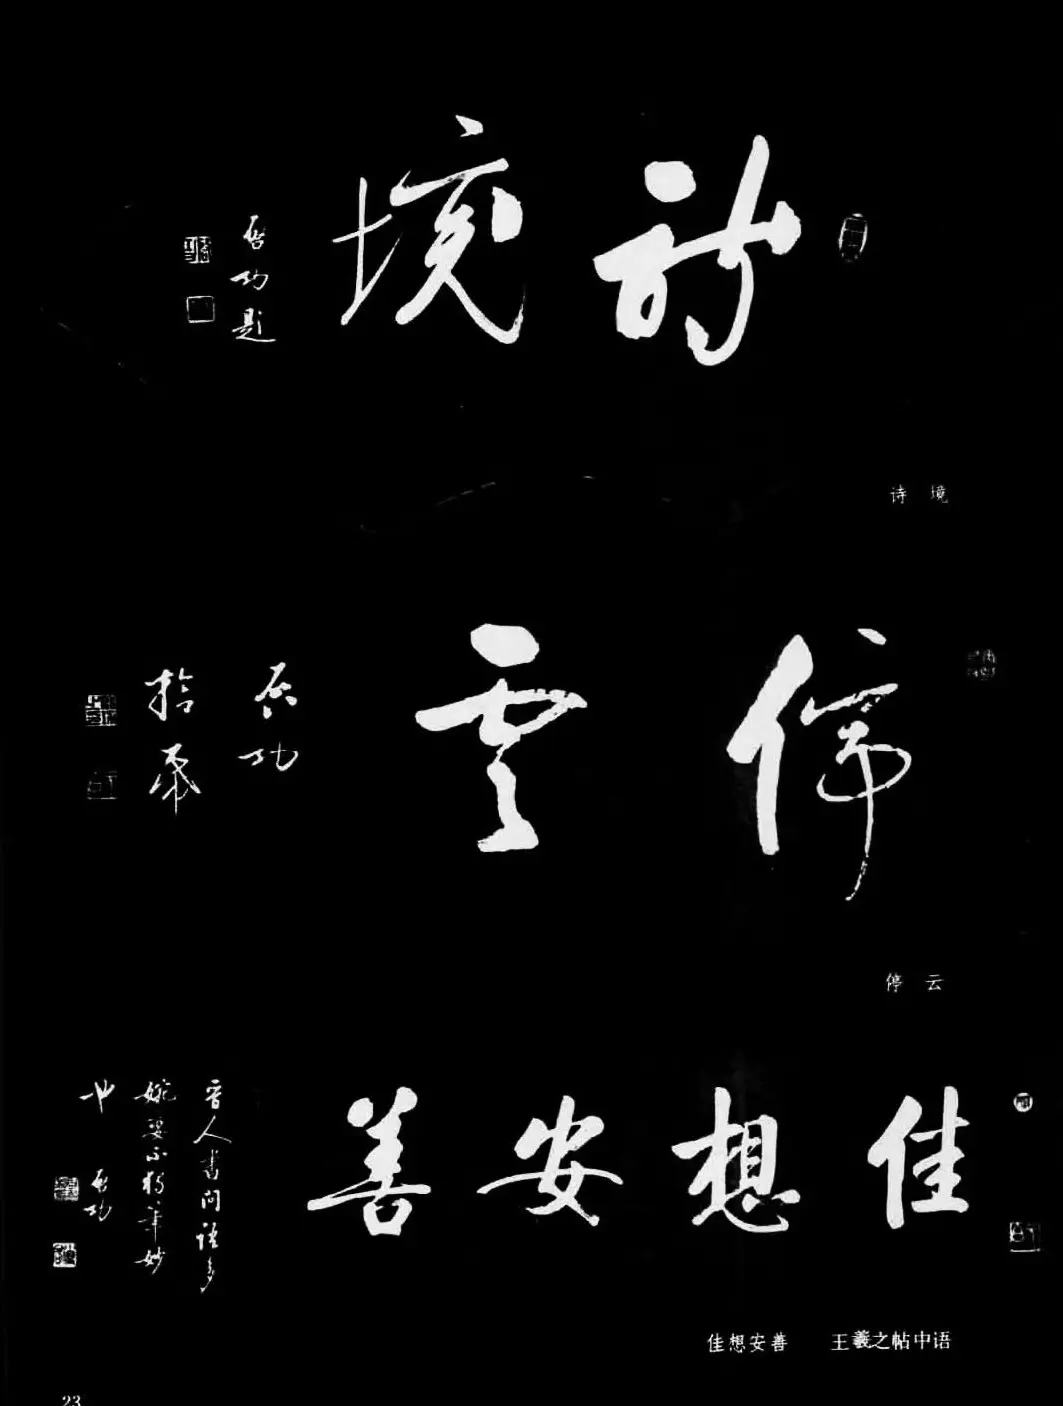 诗境
启功题
诗 境
停云
启功
拾笔
停 云
佳想安善
晋人书问语多
婉妥不独笔妙
也 启功
佳想安善 王羲之帖中语
23